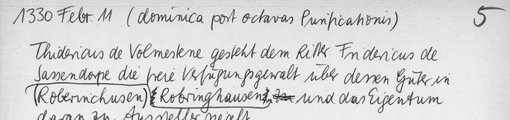 1330 Febr. 11 (dominica post octavas Purificationis) 5
Thidericus de Volmestene gesteht dem Ritter Fridericus de
Sassendorpe die freie Verfügungsgewalt über dessen Güter in
(Roberinchusen) {Robringhausen} und das Eigentum
daran zu. Aussteller siegelt